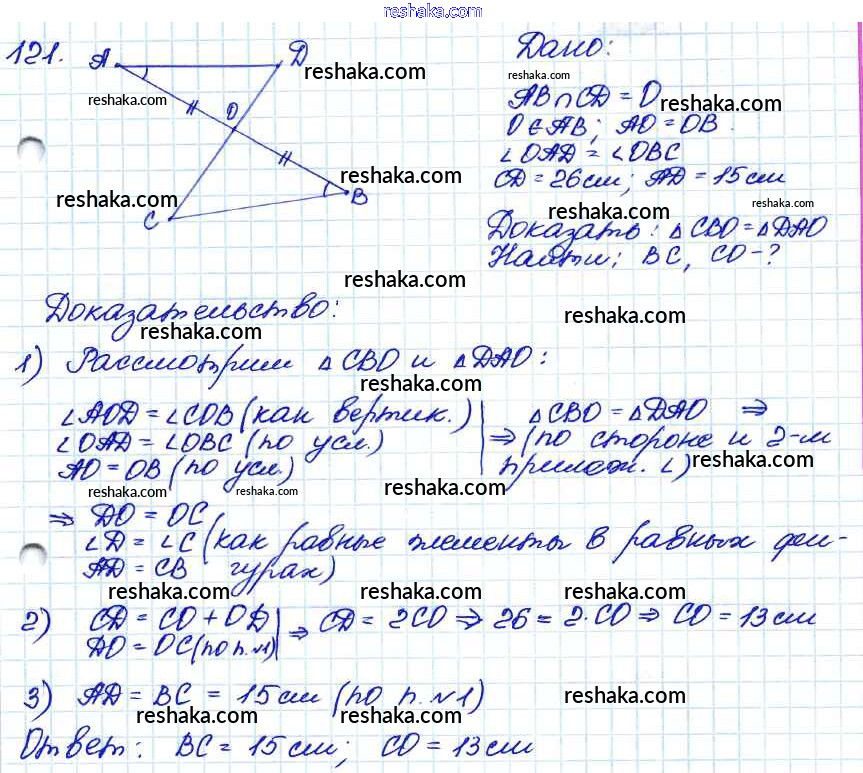 reshaka.com
121. A D Дано:
reshaka.com reshaka.com
reshaka.com O AB ∩ CD = O reshaka.com
O ∈ AB; AO = OB
reshaka.com ∠OAD = ∠OBC
reshaka.com B CD = 26см; AD = 15см
C reshaka.com reshaka.com
Доказать: △CBO = △DAO
reshaka.com Найти: BC, CO - ?
Доказательство: reshaka.com
reshaka.com
1) Рассмотрим △CBO и △DAO:
reshaka.com
∠AOD = ∠COB (как вертик.) △CBO = △DAO ⇒
∠OAD = ∠OBC (по усл.) ⇒ (по стороне и 2-м
AO = OB (по усл.) прилеж. ∠) reshaka.com
reshaka.com reshaka.com reshaka.com
⇒ DO = OC
∠D = ∠C (как равные элементы в равных фи-
AD = CB гурах)
reshaka.com reshaka.com reshaka.com
2) CD = CO + OD ⇒ CD = 2CO ⇒ 26 = 2·CO ⇒ CO = 13см
DO = OC (по п.№1)
reshaka.com reshaka.com reshaka.com
3) AD = BC = 15см (по п.№1) reshaka.com
reshaka.com reshaka.com
Ответ: BC = 15см; CO = 13см
reshaka.com reshaka.com reshaka.com